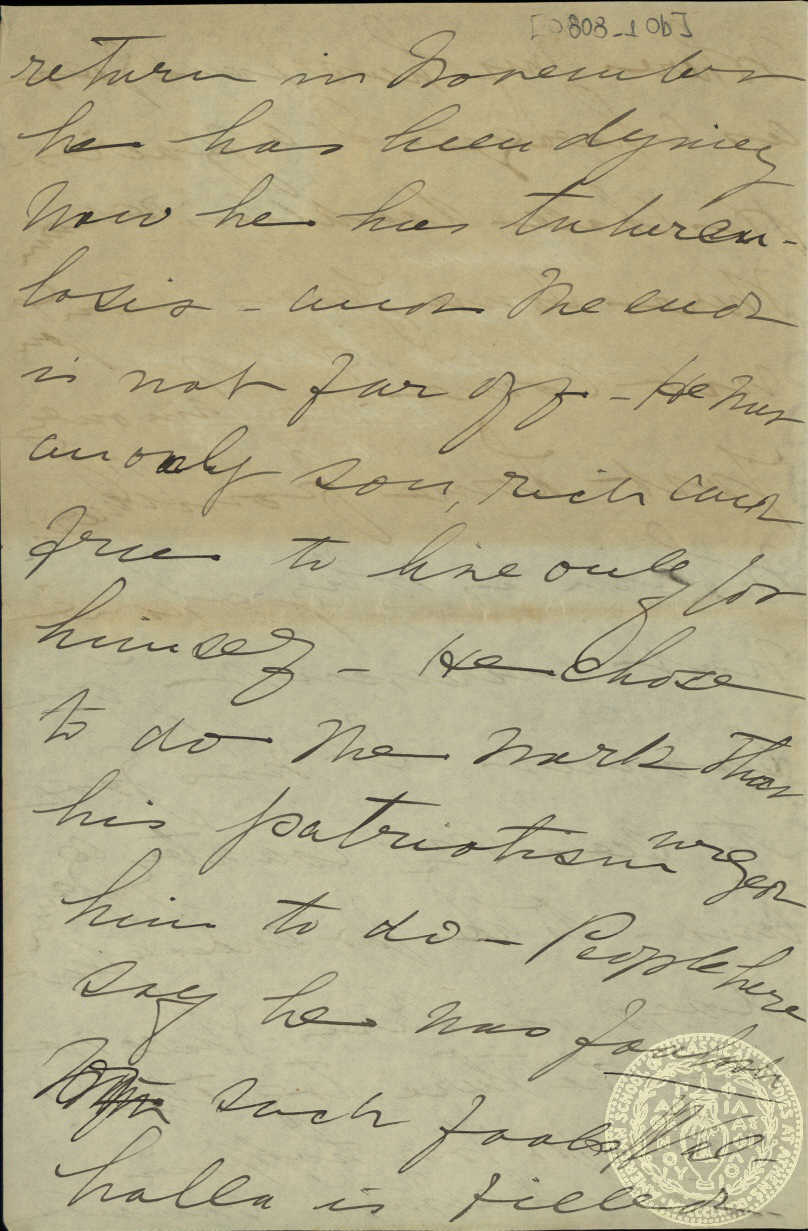 return in November
he has been dying
Now he has tubercu-
losis - and the end
is not far off - He was
an only son, rich and
free to live only for
himself - He chose
to do the work that
his patriotism urged
him to do - People here
say he was foolish
With such fools Val-
halla is filled -